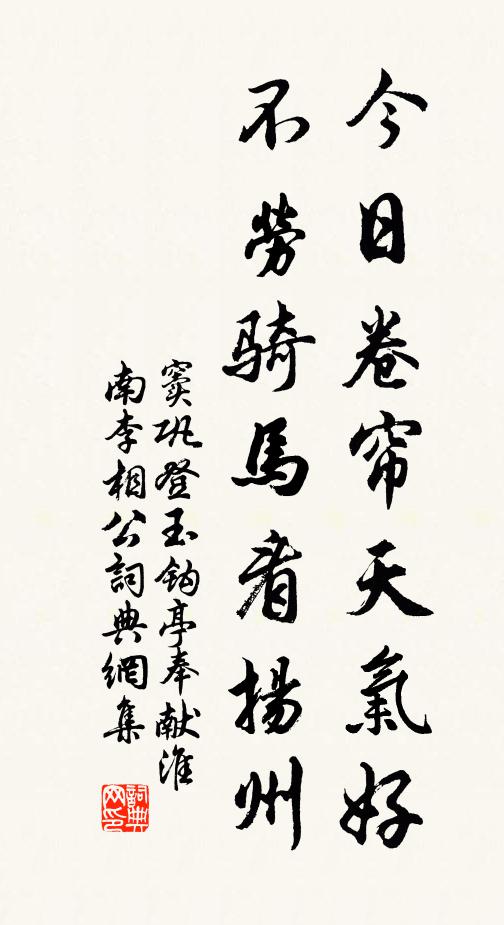 今日卷帘天氣好
不勞騎馬看揚州
窦巩登玉钩亭奉献淮
南李相公詞典網集
詞典网印